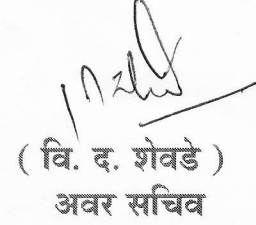 ( वि. द. शेवडे )
अवर सचिव